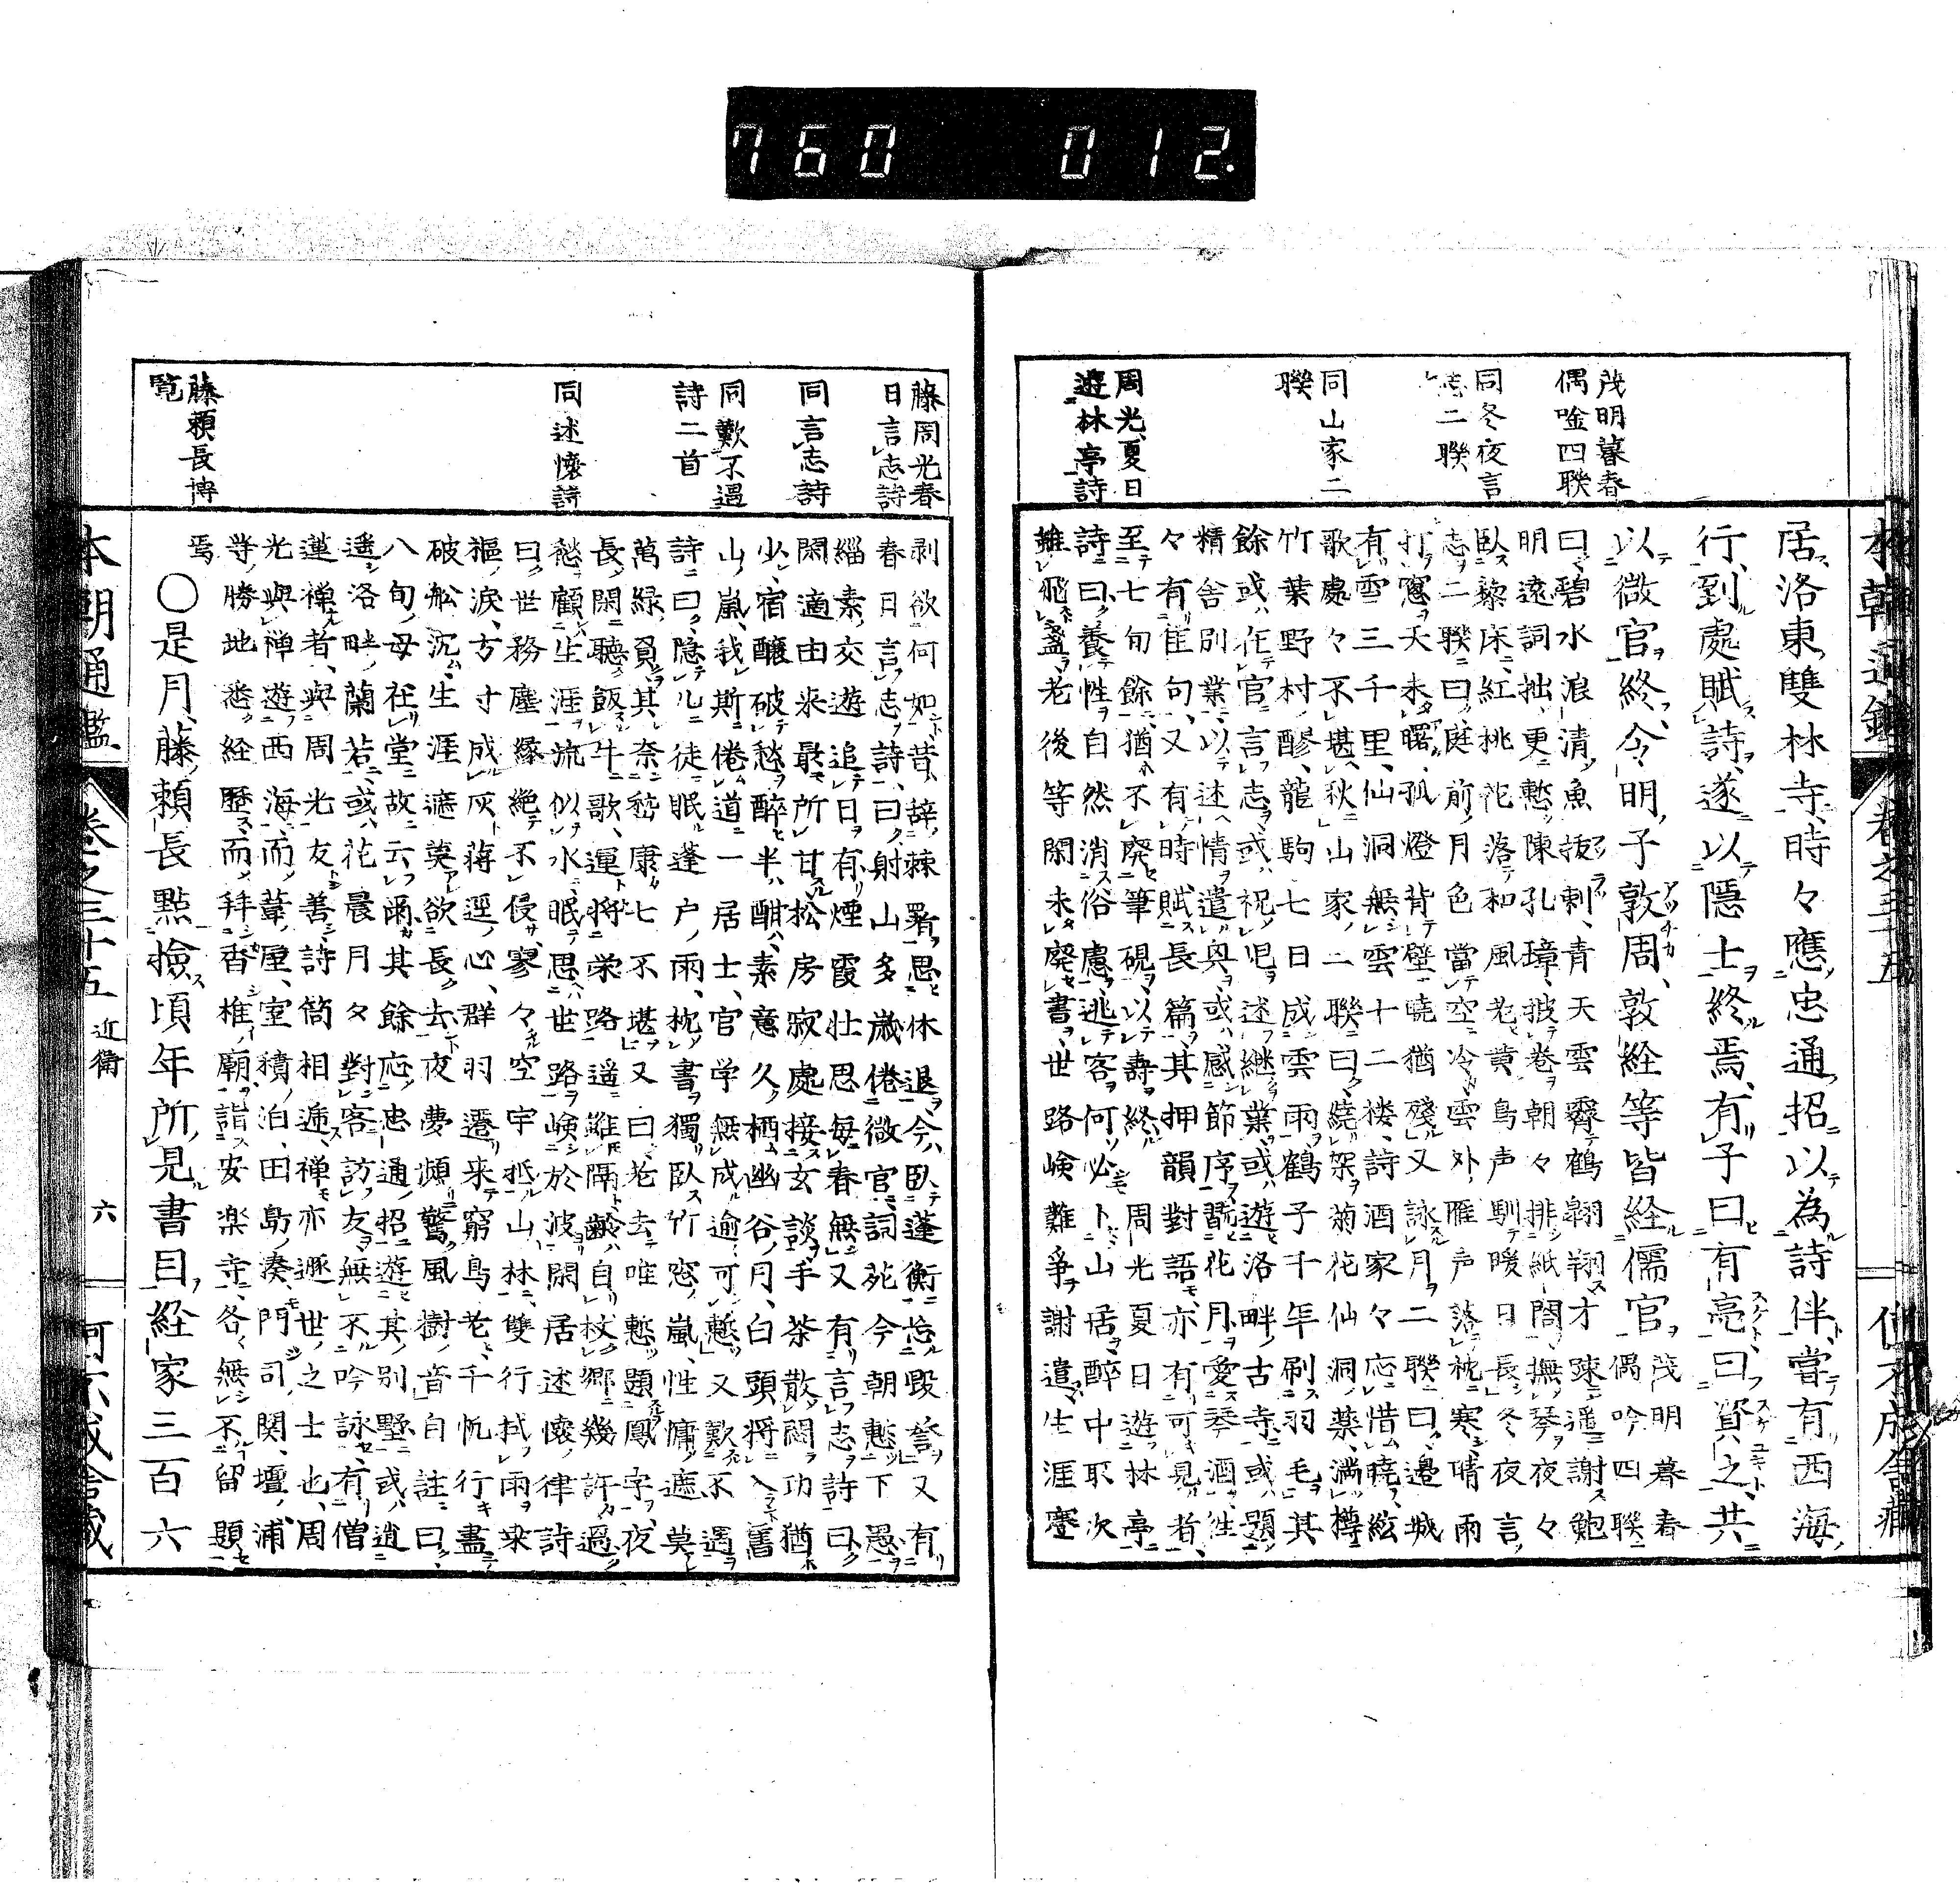 760 012
茂明暮春
偶唫四聨
同冬夜言
志二聨
同山家二
聨
周光夏日
遊林亭詩
居洛東雙林寺時々應忠通招以為詩伴嘗有西海
行到處賦詩遂以隱士終焉有子曰有亮曰賀之共
以微官終令明子敦周敦経等皆経儒官
茂明暮春
偶吟四聨
曰碧水浪清魚撥剌青天雲霽鶴翺翔才踈遥謝鮑
明遠詞拙更慙陳孔璋披巻朝々排紙閤撫琴夜々
臥藜床紅桃花落和風老黄鳥声馴暖日長冬夜言
志二聨曰庭前月色當空冷雲外雁声落枕寒晴雨
打窓天未曙孤燈背壁曉猶殘又詠月二聨曰邊城
有雪三千里仙洞無雲十二楼詩酒家々応惜曉絃
歌處々不堪秋山家二聯曰繞架菊花仙洞薬満樽
竹葉野村醪龍駒七日成雲雨鶴子千年刷羽毛其
餘或在官言志或祝児述継業或遊洛畔古寺或題
精舎別業以述情遣奥或感節序翫花月愛琴酒往
々有佳句又有時賦長篇其押韻對語亦有可見者
至七旬餘猶不廃筆硯以壽終周光夏日遊林亭
詩曰養性自然消俗慮逃客何必卜山居酔中耽次
雖飛盞老後等閑未廃書世路嶮難爭謝遣生涯蹇
藤周光春
日言志詩
同言志詩
同歎不遇
詩二首
同述懷詩
藤頼長博
覧
剥欲何如昔辞棘署思休退今臥蓬衡忘毀誉又有
春日言志詩曰射山多歳倦微官詞苑今朝慙下愚
緇素交遊追日有煙霞壮思毎春無又有言志詩曰
閑適由来最所甘松房寂處接玄談手茶散悶功猶
少宿醸破愁酔半酣素意久栖幽谷月白頭将入舊
山嵐我斯倦道一居士官学無成逾可慙又歎不遇
詩曰隠几徒眠蓬户雨枕書獨臥竹窓嵐性慵遮莫
萬緑負其奈嵆康七不堪又曰老去唯慙題鳳字夜
長閑聽飯牛歌運将栄路遥雖隔齢自杖郷幾許過
愁顧生涯流似水眠思世路嶮於波閑居述懷律詩
曰世務塵縁絶不侵寥々空宇祗山林雙行拭雨来
樞涙方寸成灰蒋逕心群羽遷来窮鳥老千帆行盡
破舩沉生涯遮莫欲長去夜夢頻驚風樹音自註曰
八旬母在堂故云爾其餘応忠通招遊其別墅或逍
遥洛畔蘭若或花晨月夕對客訪友無不吟詠有僧
蓮禅者與周光友善詩筒相逓禅亦遯世之士也周
光與禅遊西海而葦屋室積泊田島湊門司関壇浦
等勝地悉経歴而拝香椎廟詣安楽寺各無不留題
焉
〇是月藤頼長點撿頃年所見書目経家三百六
本朝通鑑 卷之三十五 近衛 六